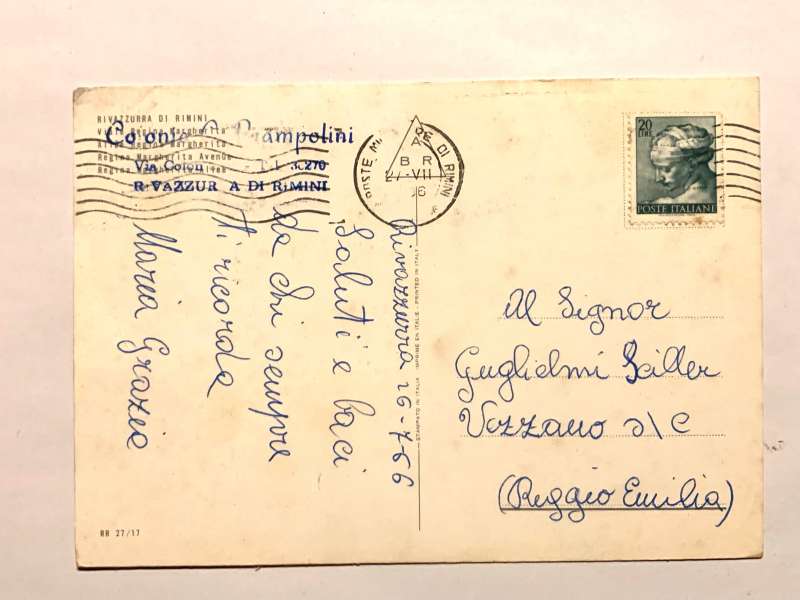 RIVAZZURRA DI RIMINI
Viale Regina Margherita
Regina Margherita Avenue
Regina Margherita
Prampolini
Via Colon
RIVAZZURRA DI RIMINI
POSTE DI RIMINI
A
BR
-VII
20
LIRE
POSTE ITALIANE
Rivazzurra 26-7-66
Saluti e baci
da chi sempre
ti ricorda
Maria Grazia
STAMPATO IN ITALIA IMPRIMÉ EN ITALIE PRINTED IN ITALY
Al Signor
Guglielmi
Vezzano s/C
(Reggio Emilia)
RR 27/17